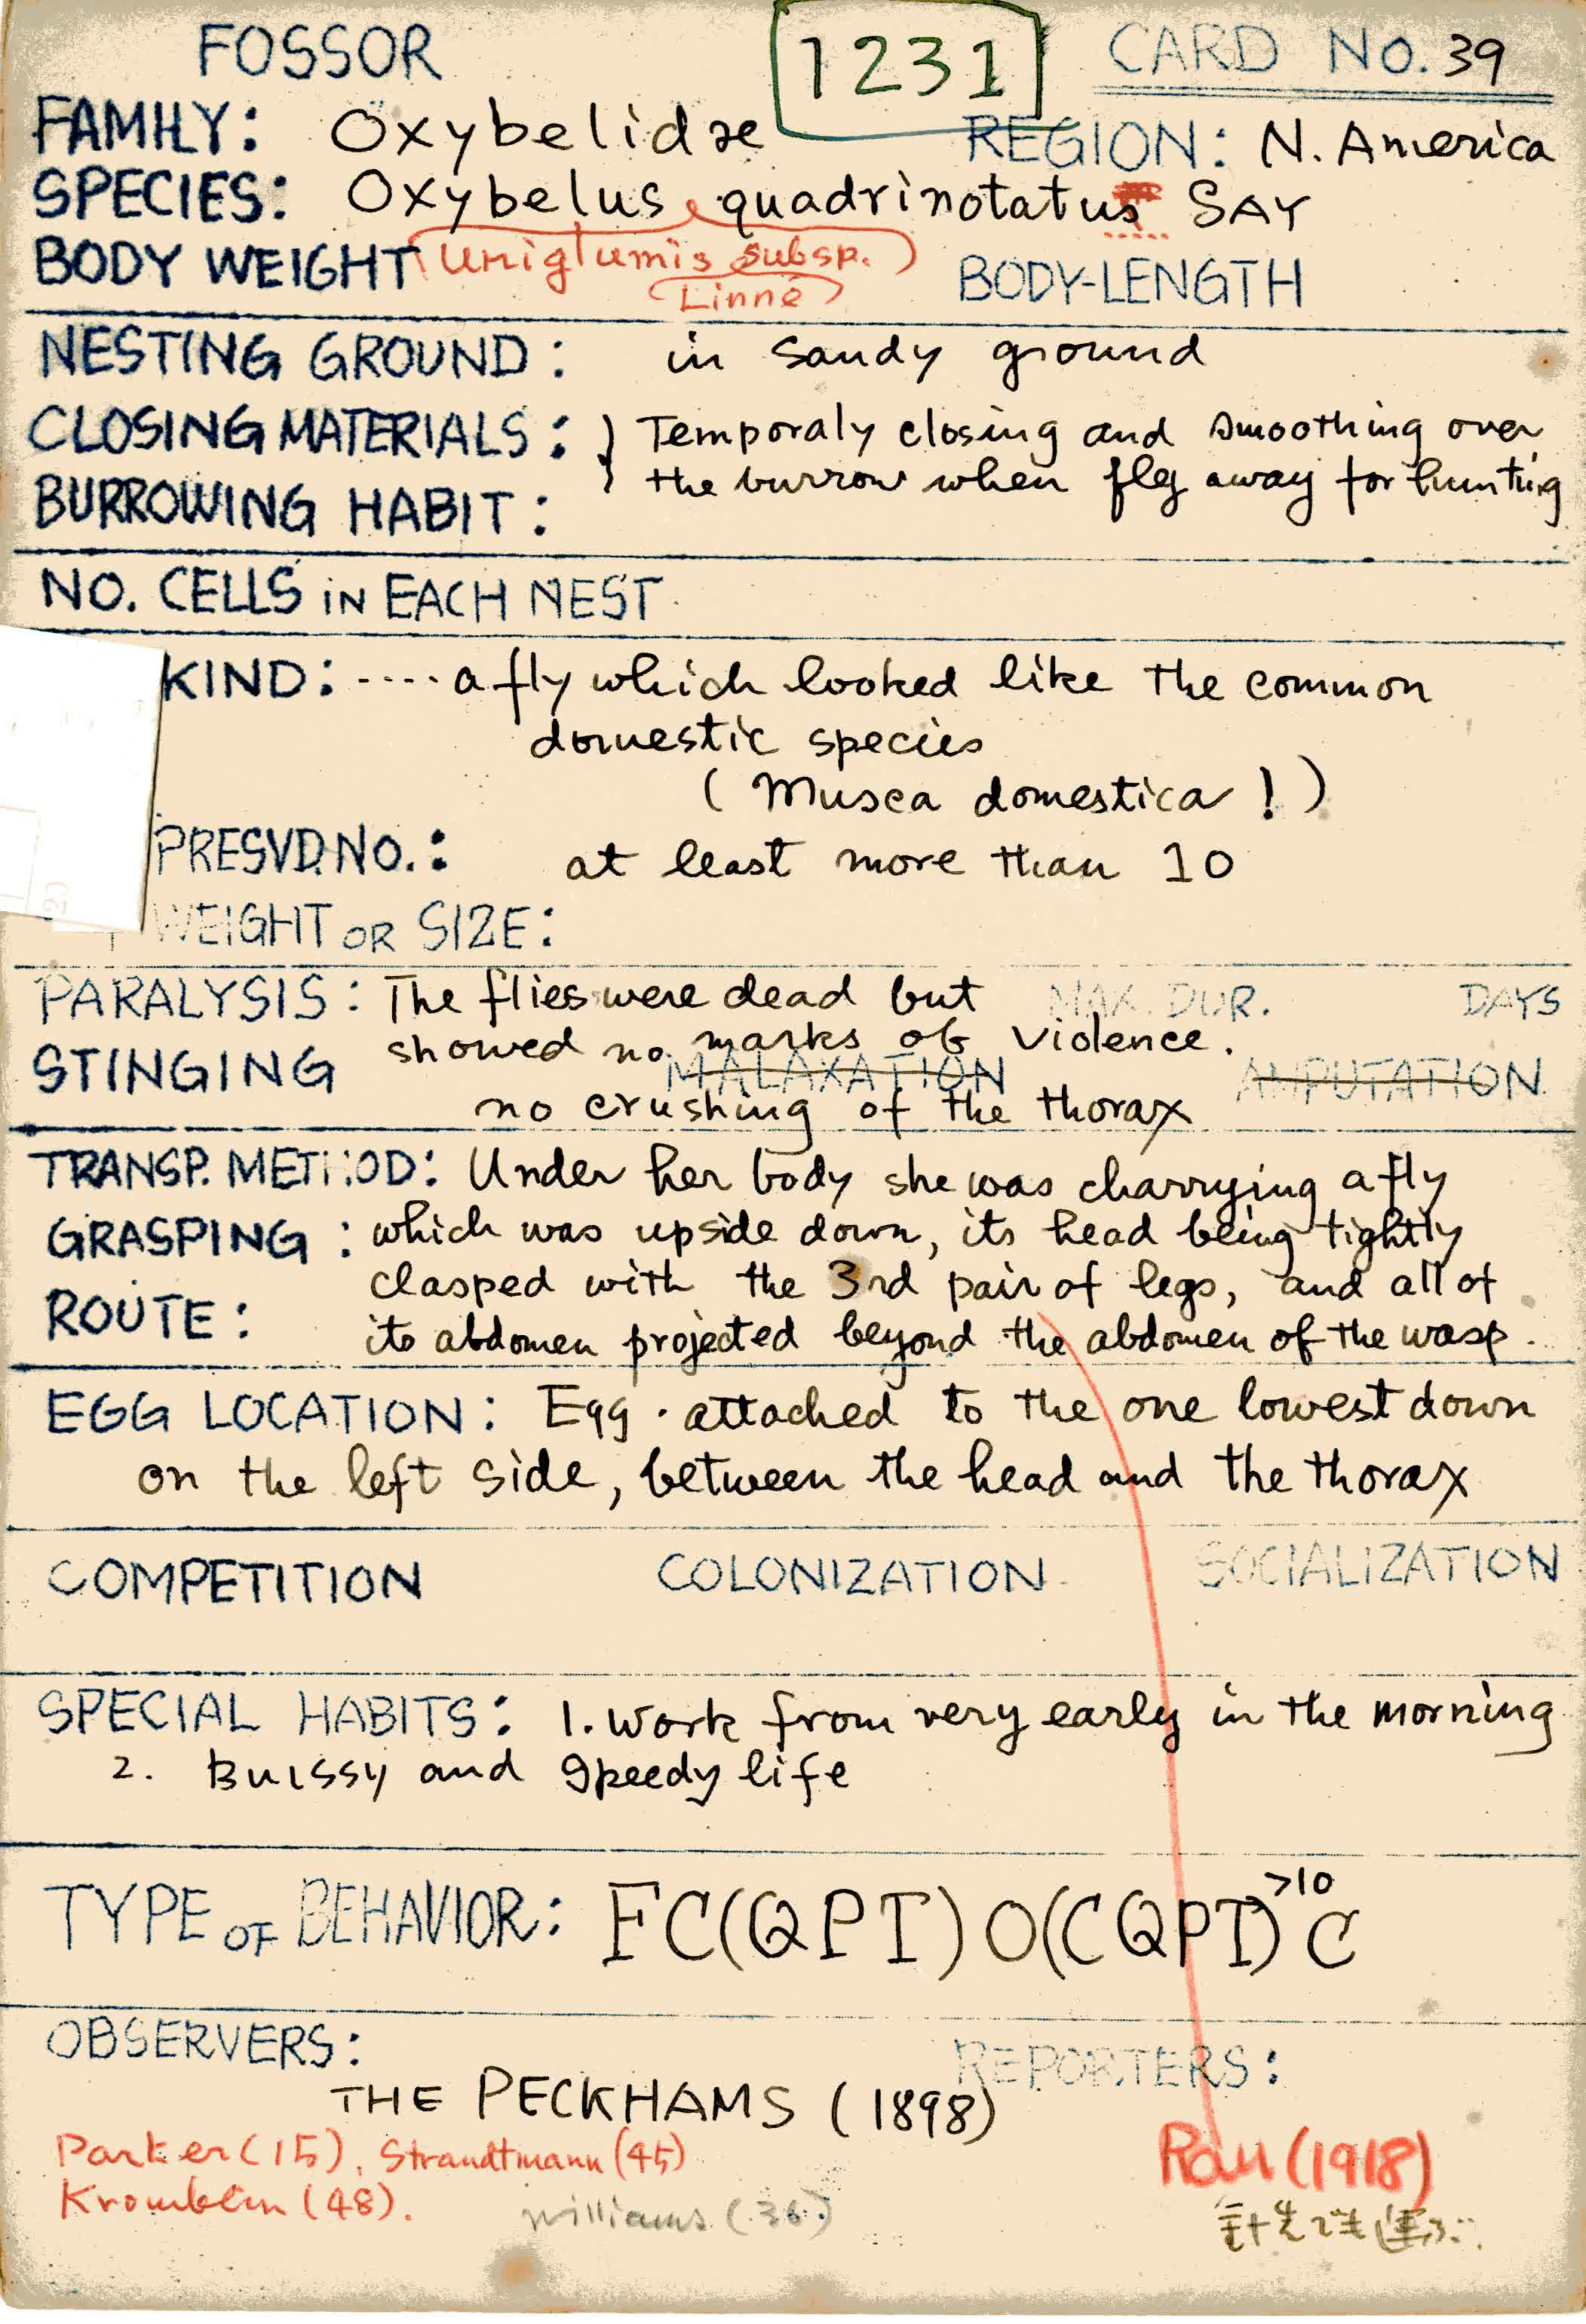 FOSSOR 1231 CARD NO. 39
FAMILY: Oxybelidae REGION: N. America
SPECIES: Oxybelus quadrinotatus SAY
BODY WEIGHT (uniglumis subsp.) BODY-LENGTH
(Linné)
NESTING GROUND: in sandy ground
CLOSING MATERIALS: } Temporaly closing and smoothing over
BURROWING HABIT: the burrow when fly away for hunting
NO. CELLS iN EACH NEST
KIND: ---- a fly which looked like the common
domestic species
(Musca domestica!)
PRESVD. NO.: at least more than 10
WEIGHT OR SIZE:
PARALYSIS: The flies were dead but MAX. DUR. DAYS
showed no marks of violence.
STINGING MALAXATION AMPUTATION
no crushing of the thorax
TRANSP. METHOD: Under her body she was charrying a fly
GRASPING: which was upside down, its head being tightly
clasped with the 3rd pair of legs, and all of
ROUTE: its abdomen projected beyond the abdomen of the wasp.
EGG LOCATION: Egg attached to the one lowest down
on the left side, between the head and the thorax
COMPETITION COLONIZATION SOCIALIZATION
SPECIAL HABITS: 1. Work from very early in the morning
2. Buissy and speedy life
TYPE OF BEHAVIOR: FC(QPI)O(CQPI)>10 C
OBSERVERS: REPORTERS:
THE PECKHAMS (1898)
Parker (15), Strandtmann (45) Rau (1918)
Krombein (48). Williams (36) 針先で運ぶ